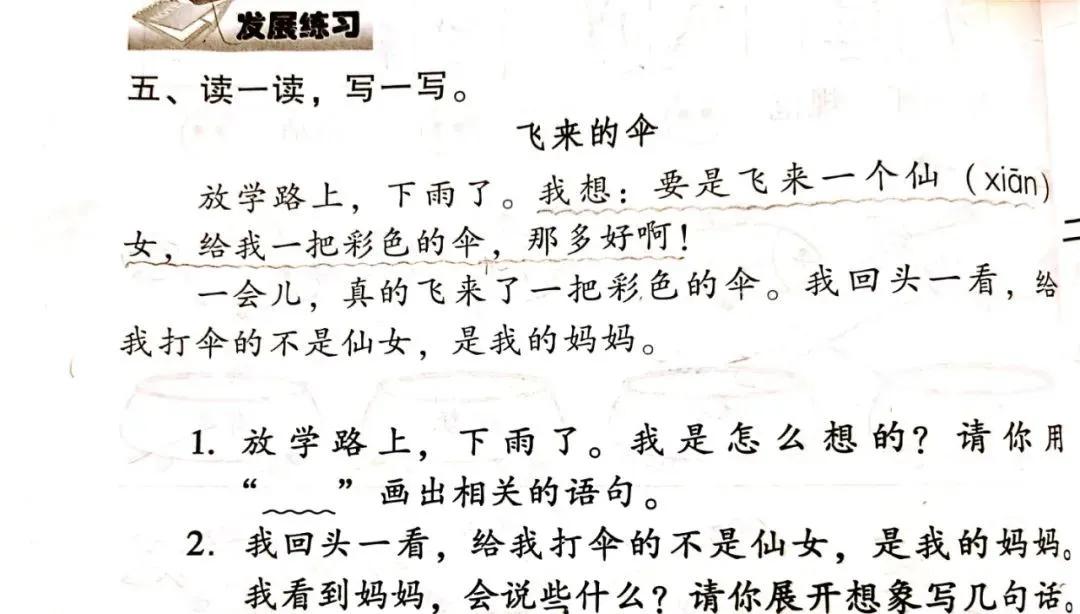 发展练习
五、读一读，写一写。
飞来的伞
放学路上，下雨了。我想：要是飞来一个仙（xiān）
女，给我一把彩色的伞，那多好啊！
一会儿，真的飞来了一把彩色的伞。我回头一看，给
我打伞的不是仙女，是我的妈妈。
1. 放学路上，下雨了。我是怎么想的？请你用
“ ”画出相关的语句。
2. 我回头一看，给我打伞的不是仙女，是我的妈妈。
我看到妈妈，会说些什么？请你展开想象写几句话。